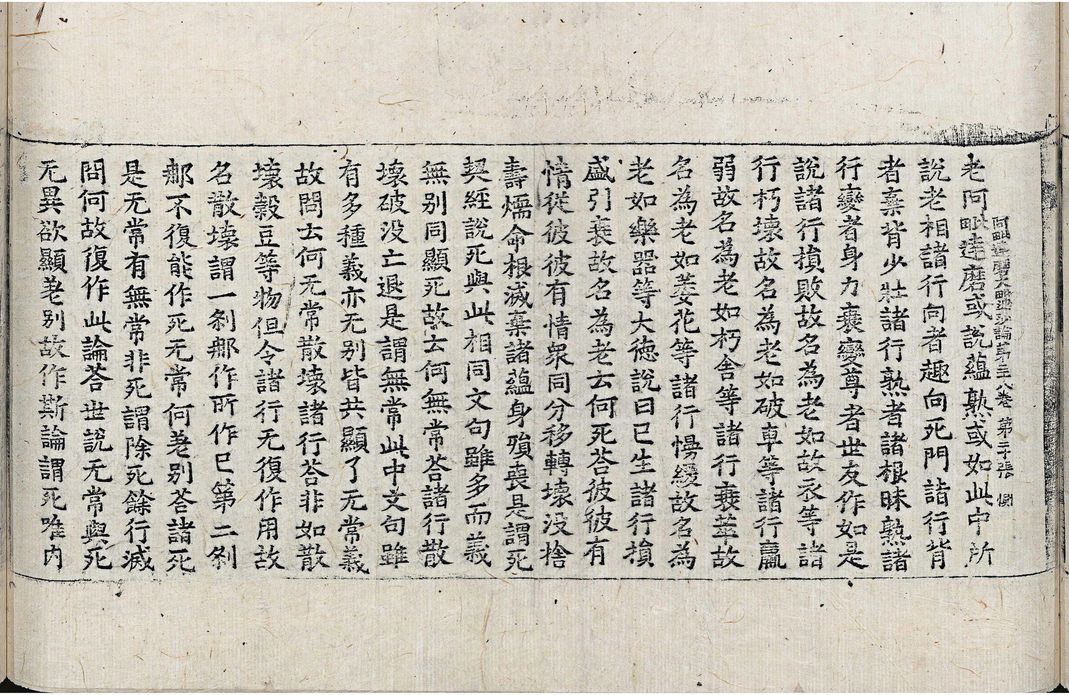 老阿毗達磨或說蘊熟或如此中所
阿毗達磨大毗婆沙論第三八卷 第二張
說老相諸行向者趣向死門諸行背
者棄背少壯諸行熟者諸根昧熟諸
行變者身力衰變尊者世友作如是
說諸行損敗故名為老如故衣等諸
行朽壞故名為老如破車等諸行羸
弱故名為老如朽舍等諸行衰萃故
名為老如萎花等諸行慢緩故名為
老如樂器等大德說曰已生諸行損
盛引衰故名為老云何死荅彼彼有
情從彼彼有情衆同分移轉壞没捨
壽煗命根滅棄諸蘊身殞喪是謂死
契經說死與此相同文句雖多而義
無別同顯死故云何無常荅諸行散
壞破没亡退是謂無常此中文句雖
有多種義亦无別皆共顯了无常義
故問云何无常散壞諸行荅非如散
壞穀豆等物但令諸行无復作用故
名散壞謂一剎那作所作已第二剎
那不復能作死无常何差別荅諸死
是无常有無常非死謂除死餘行滅
問何故復作此論荅世說无常與死
无異欲顯差別故作斯論謂死唯內